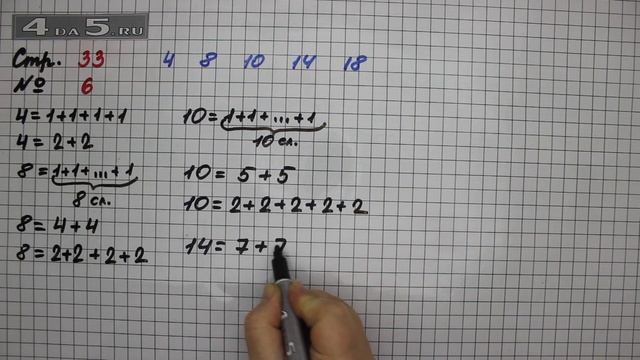 4 DA 5.RU
Стр. 33 4 8 10 14 18
№ 6
4=1+1+1+1
4=2+2
8=1+1+...+1
8 сл.
8=4+4
8=2+2+2+2
10=1+1+...+1
10 сл.
10=5+5
10=2+2+2+2+2
14=7+7